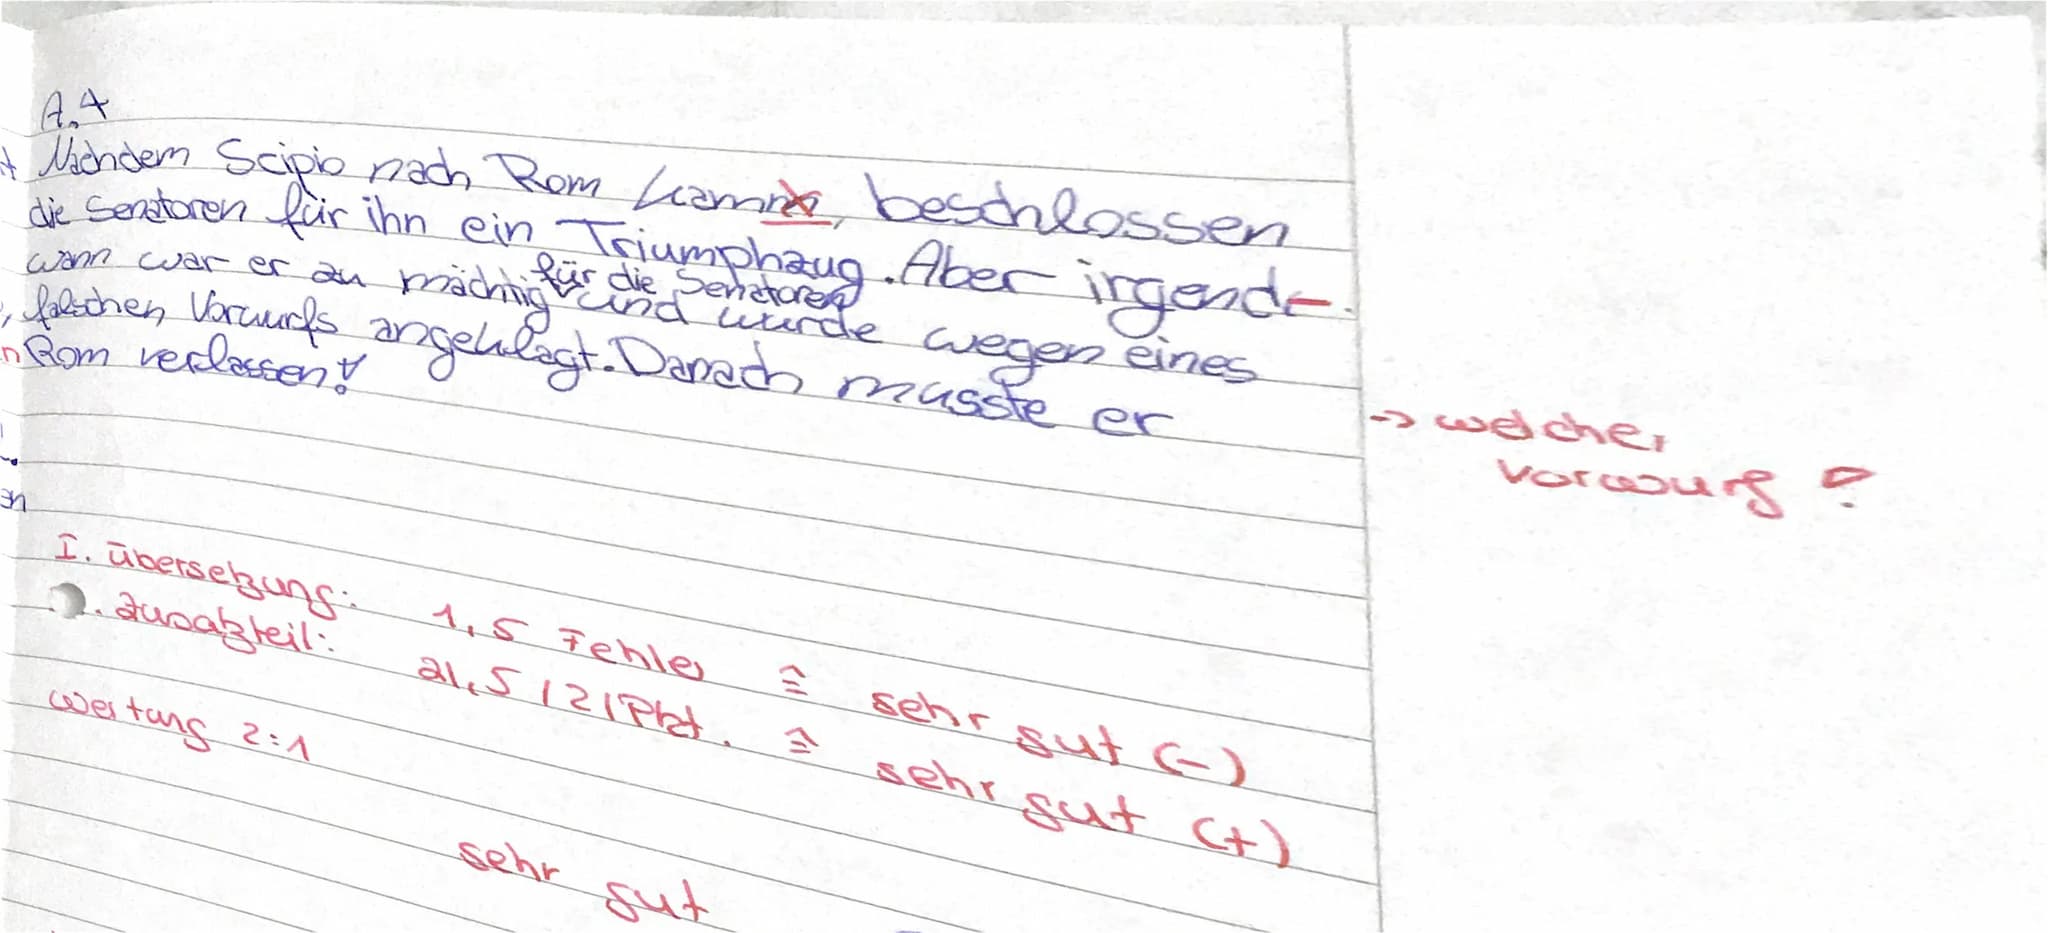 A.4
Nachdem Scipio nach Rom kamm, beschlossen
die Senatoren für ihn ein Triumphzug. Aber irgend-
wann war er zu mächtig für die Senatoren und wurde wegen eines
falschen Vorwurfs angeklagt. Danach musste er
Rom verlassen!
→ welcher
Vorwurf?
I. Übersetzung: 1,5 Fehler ≙ sehr gut (-)
. Zusatzteil: 21,5 / 21 Pkt. ≙ sehr gut (+)
Wertung 2:1
sehr gut